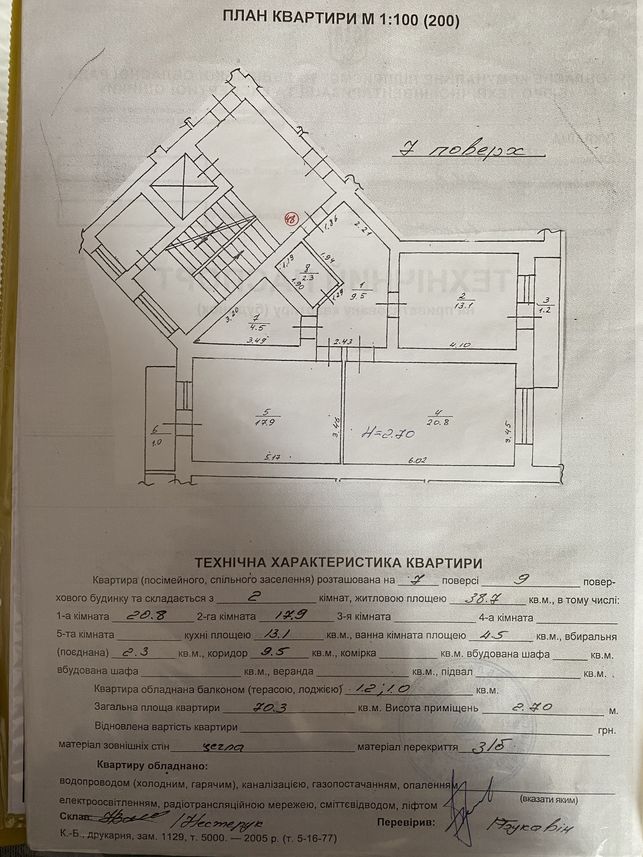 ПЛАН КВАРТИРИ М 1:100 (200)
7 поверх
48
1,86
2.21
1.19
8
2.3
1.94
1.90
1.29
1
9.5
2
13.1
3
1.2
3.20
7
4.5
3.49
2.43
4.10
5
17.9
3.46
4
20.8
3.45
H=2.70
6
1.0
5.17
6.02
ТЕХНІЧНА ХАРАКТЕРИСТИКА КВАРТИРИ
Квартира (посімейного, спільного заселення) розташована на 7 поверсі 9 повер-
хового будинку та складається з 2 кімнат, житловою площею 38.7 кв.м., в тому числі:
1-а кімната 20.8 2-га кімната 17.9 3-я кімната 4-а кімната
5-та кімната кухні площею 13.1 кв.м., ванна кімната площею 4.5 кв.м., вбиральня
(поєднана) 2.3 кв.м., коридор 9.5 кв.м., комірка кв.м. вбудована шафа кв.м.
вбудована шафа кв.м., веранда кв.м., підвал кв.м. .
Квартира обладнана балконом (терасою, лоджією) 1.2; 1.0 кв.м.
Загальна площа квартири 70.3 кв.м. Висота приміщень 2.70 м.
Відновлена вартість квартири грн.
матеріал зовнішніх стін цегла матеріал перекриття з/б
Квартиру обладнано:
водопроводом (холодним, гарячим), каналізацією, газопостачанням, опаленням,
електроосвітленням, радіотрансляційною мережею, сміттєвідводом, ліфтом (вказати яким)
Склав: / Нестерук Перевірив:
К.-Б., друкарня, зам. 1129, т. 5000. — 2005 р. (т. 5-16-77)